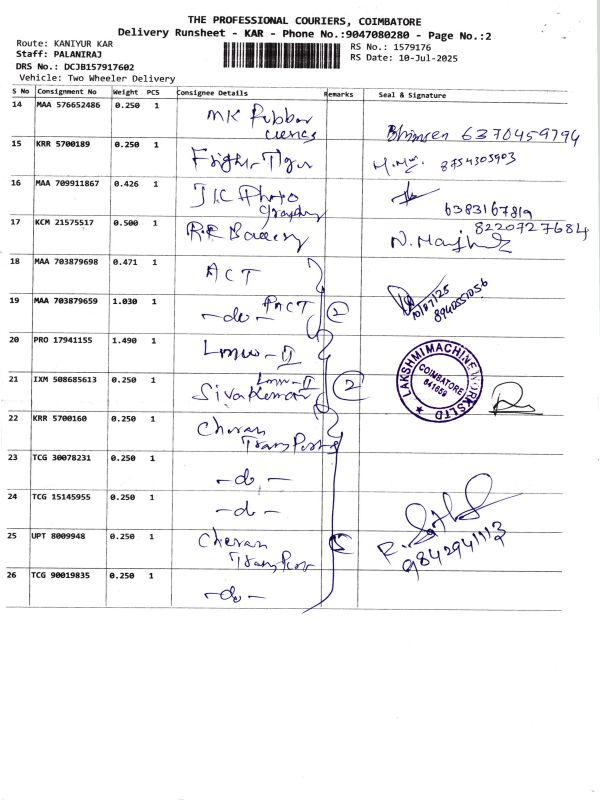 THE PROFESSIONAL COURIERS, COIMBATORE
Delivery Runsheet - KAR - Phone No.:9047080280 - Page No.:2
Route: KANIYUR KAR
Staff: PALANIRAJ
DRS No.: DCJB157917602
Vehicle: Two Wheeler Delivery
RS No.: 1579176
RS Date: 10-Jul-2025
S No Consignment No Weight PCS Consignee Details Remarks Seal & Signature
14 MAA 576652486 0.250 1 MK Rubber 6370459794
15 KRR 5700189 0.250 1 8754305903
16 MAA 709911867 0.426 1 6383167819
17 KCM 21575517 0.500 1 8220727684
18 MAA 703879698 0.471 1 ACT
19 MAA 703879659 1.030 1 -do- PACT 2 10/07/25 8940551056
20 PRO 17941155 1.490 1 Lmw-II
LAKSHMI MACHINE WORKS LTD
COIMBATORE
641659
21 IXM 508685613 0.250 1 Lmw-II Sivakumar 2
22 KRR 5700160 0.250 1 Cheran Transports
23 TCG 30078231 0.250 1 -do-
24 TCG 15145955 0.250 1 -do-
25 UPT 8009948 0.250 1 Cheran Transport 5 9842941113
26 TCG 90019835 0.250 1 -do-